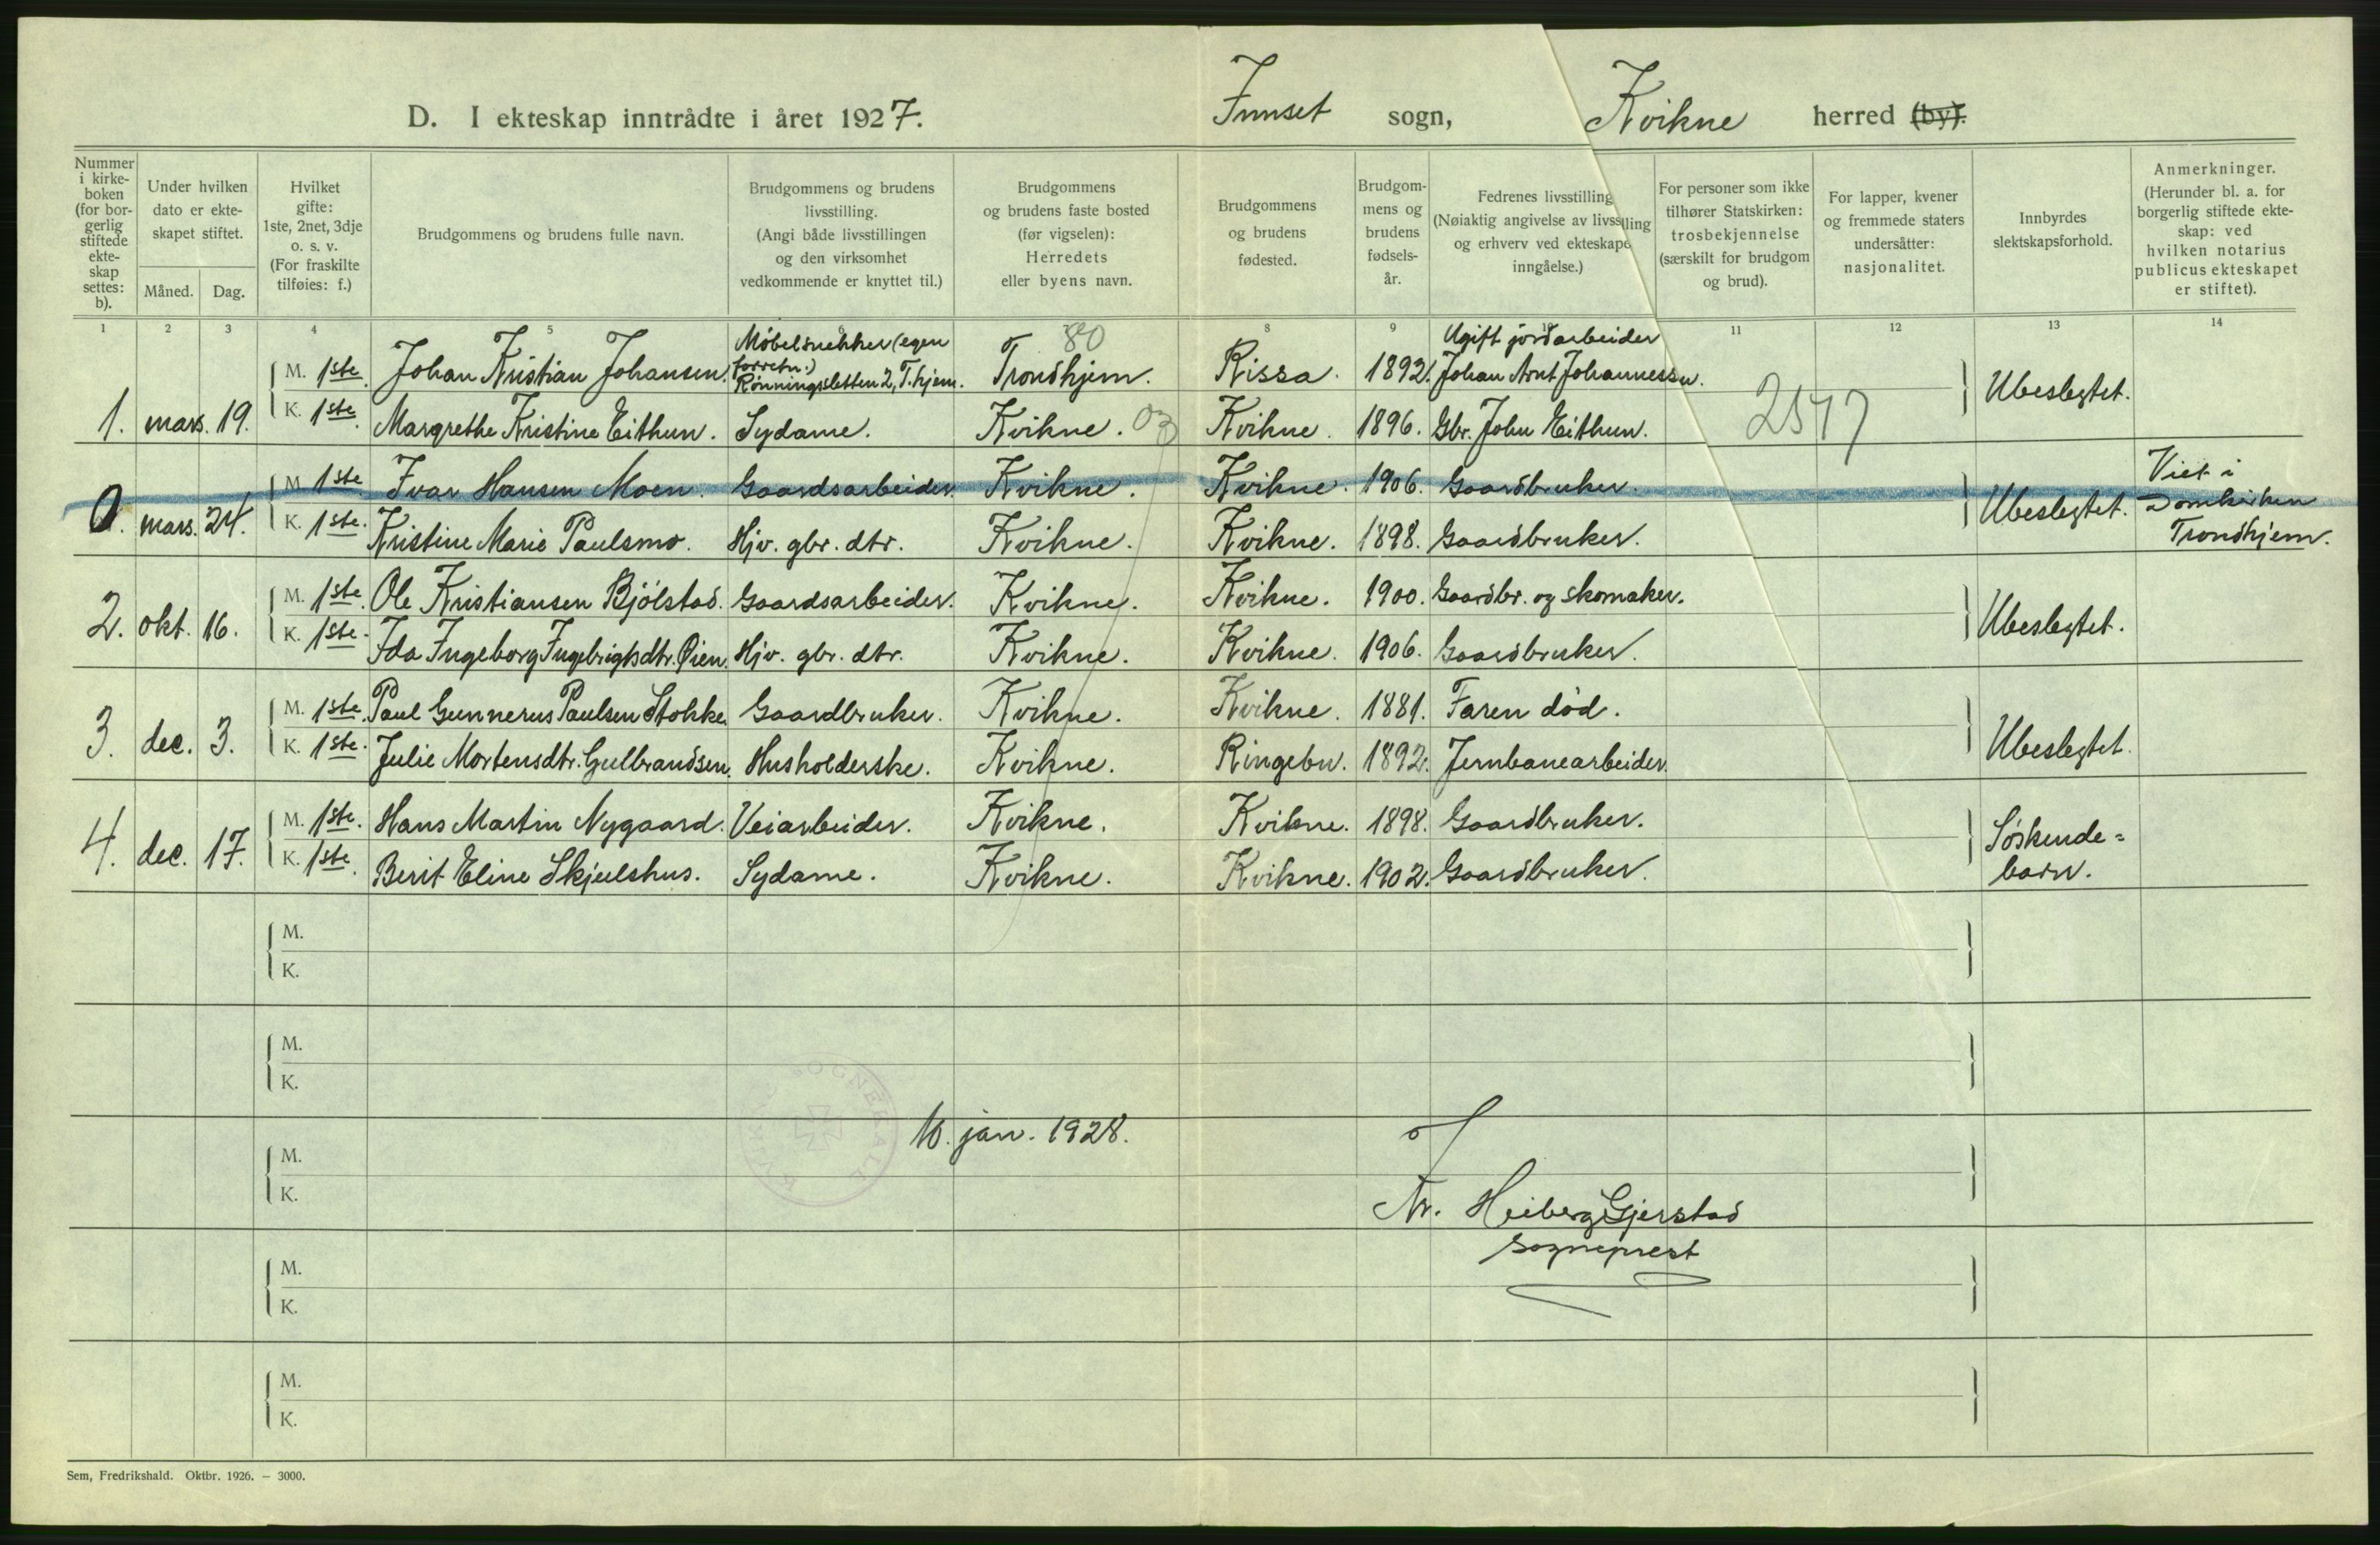 D. I ekteskap inntrådte i året 1927. Innset sogn, Kvikne herred (by).
Nummer i kirke-boken (for bor-gerlig stiftede ekte-skap settes: b).
Under hvilken dato er ekte-skapet stiftet.
Måned. Dag.
Hvilket gifte: 1ste, 2net, 3dje o. s. v. (For fraskilte tilføies: f.)
Brudgommens og brudens fulle navn.
Brudgommens og brudens livsstilling. (Angi både livsstillingen og den virksomhet vedkommende er knyttet til.)
Brudgommens og brudens faste bosted (før vigselen): Herredets eller byens navn.
Brudgommens og brudens fødested.
Brudgom-mens og brudens fødsels-år.
Fedrenes livsstilling (Nøiaktig angivelse av livsstilling og erhverv ved ekteskapets inngåelse.)
For personer som ikke tilhører Statskirken: trosbekjennelse (særskilt for brudgom og brud).
For lapper, kvener og fremmede staters undersåtter: nasjonalitet.
Innbyrdes slektskapsforhold.
Anmerkninger. (Herunder bl. a. for borgerlig stiftede ekte-skap: ved hvilken notarius publicus ekteskapet er stiftet).
1 2 3 4 5 8 9 10 11 12 13 14
80
M. 1ste. Johan Kristian Johansen. Möbelsnekker (egen forretn.) Rönningsletten 2, T.hjem. Trondhjem. Rissa. 1892. Ugift jordarbeider Johan Arnt Johannessen.
1. mars. 19. Ubeslegtet.
K. 1ste. Margrethe Kristine Eithun. Sydame. Kvikne. 03 Kvikne. 1896. Gbr. John Eithun. 2517
M. 1ste Ivar Hansen Moen. Gaardsarbeider. Kvikne. Kvikne. 1906. Gaardbruker.
0. mars. 24. Ubeslegtet. Viet i Domkirken Trondhjem.
K. 1ste. Kristine Marie Paulsmo. Hjv. gbr. dtr. Kvikne. Kvikne. 1898. Gaardbruker.
M. 1ste. Ole Kristiansen Bjölstad. Gaardsarbeider. Kvikne. Kvikne. 1900. Gaardbr. og skomaker.
2. okt. 16. Ubeslegtet.
K. 1ste. Ida Ingeborg Ingebrigtsdtr. Øien. Hjv. gbr. dtr. Kvikne. Kvikne. 1906. Gaardbruker.
M. 1ste. Paul Gunnerus Paulsen Stokke. Gaardbruker. Kvikne. Kvikne. 1881. Faren död.
3. dec. 3. Ubeslegtet.
K. 1ste. Julie Mortensdtr. Gulbrandsen. Husholderske. Kvikne. Ringebu. 1892. Jernbanearbeider.
M. 1ste. Hans Martin Nygaard. Veiarbeider. Kvikne. Kvikne. 1898. Gaardbruker.
4. dec. 17. Söskende=barn.
K. 1ste. Berit Eline Skjulshus. Sydame. Kvikne. Kvikne. 1902. Gaardbruker.
M.
K.
M.
K.
10. jan. 1928.
M.
K.
Nr. Heiberg Gjerstad
sogneprest
M.
K.
M.
K.
Sem, Fredrikshald. Oktbr. 1926. — 3000.